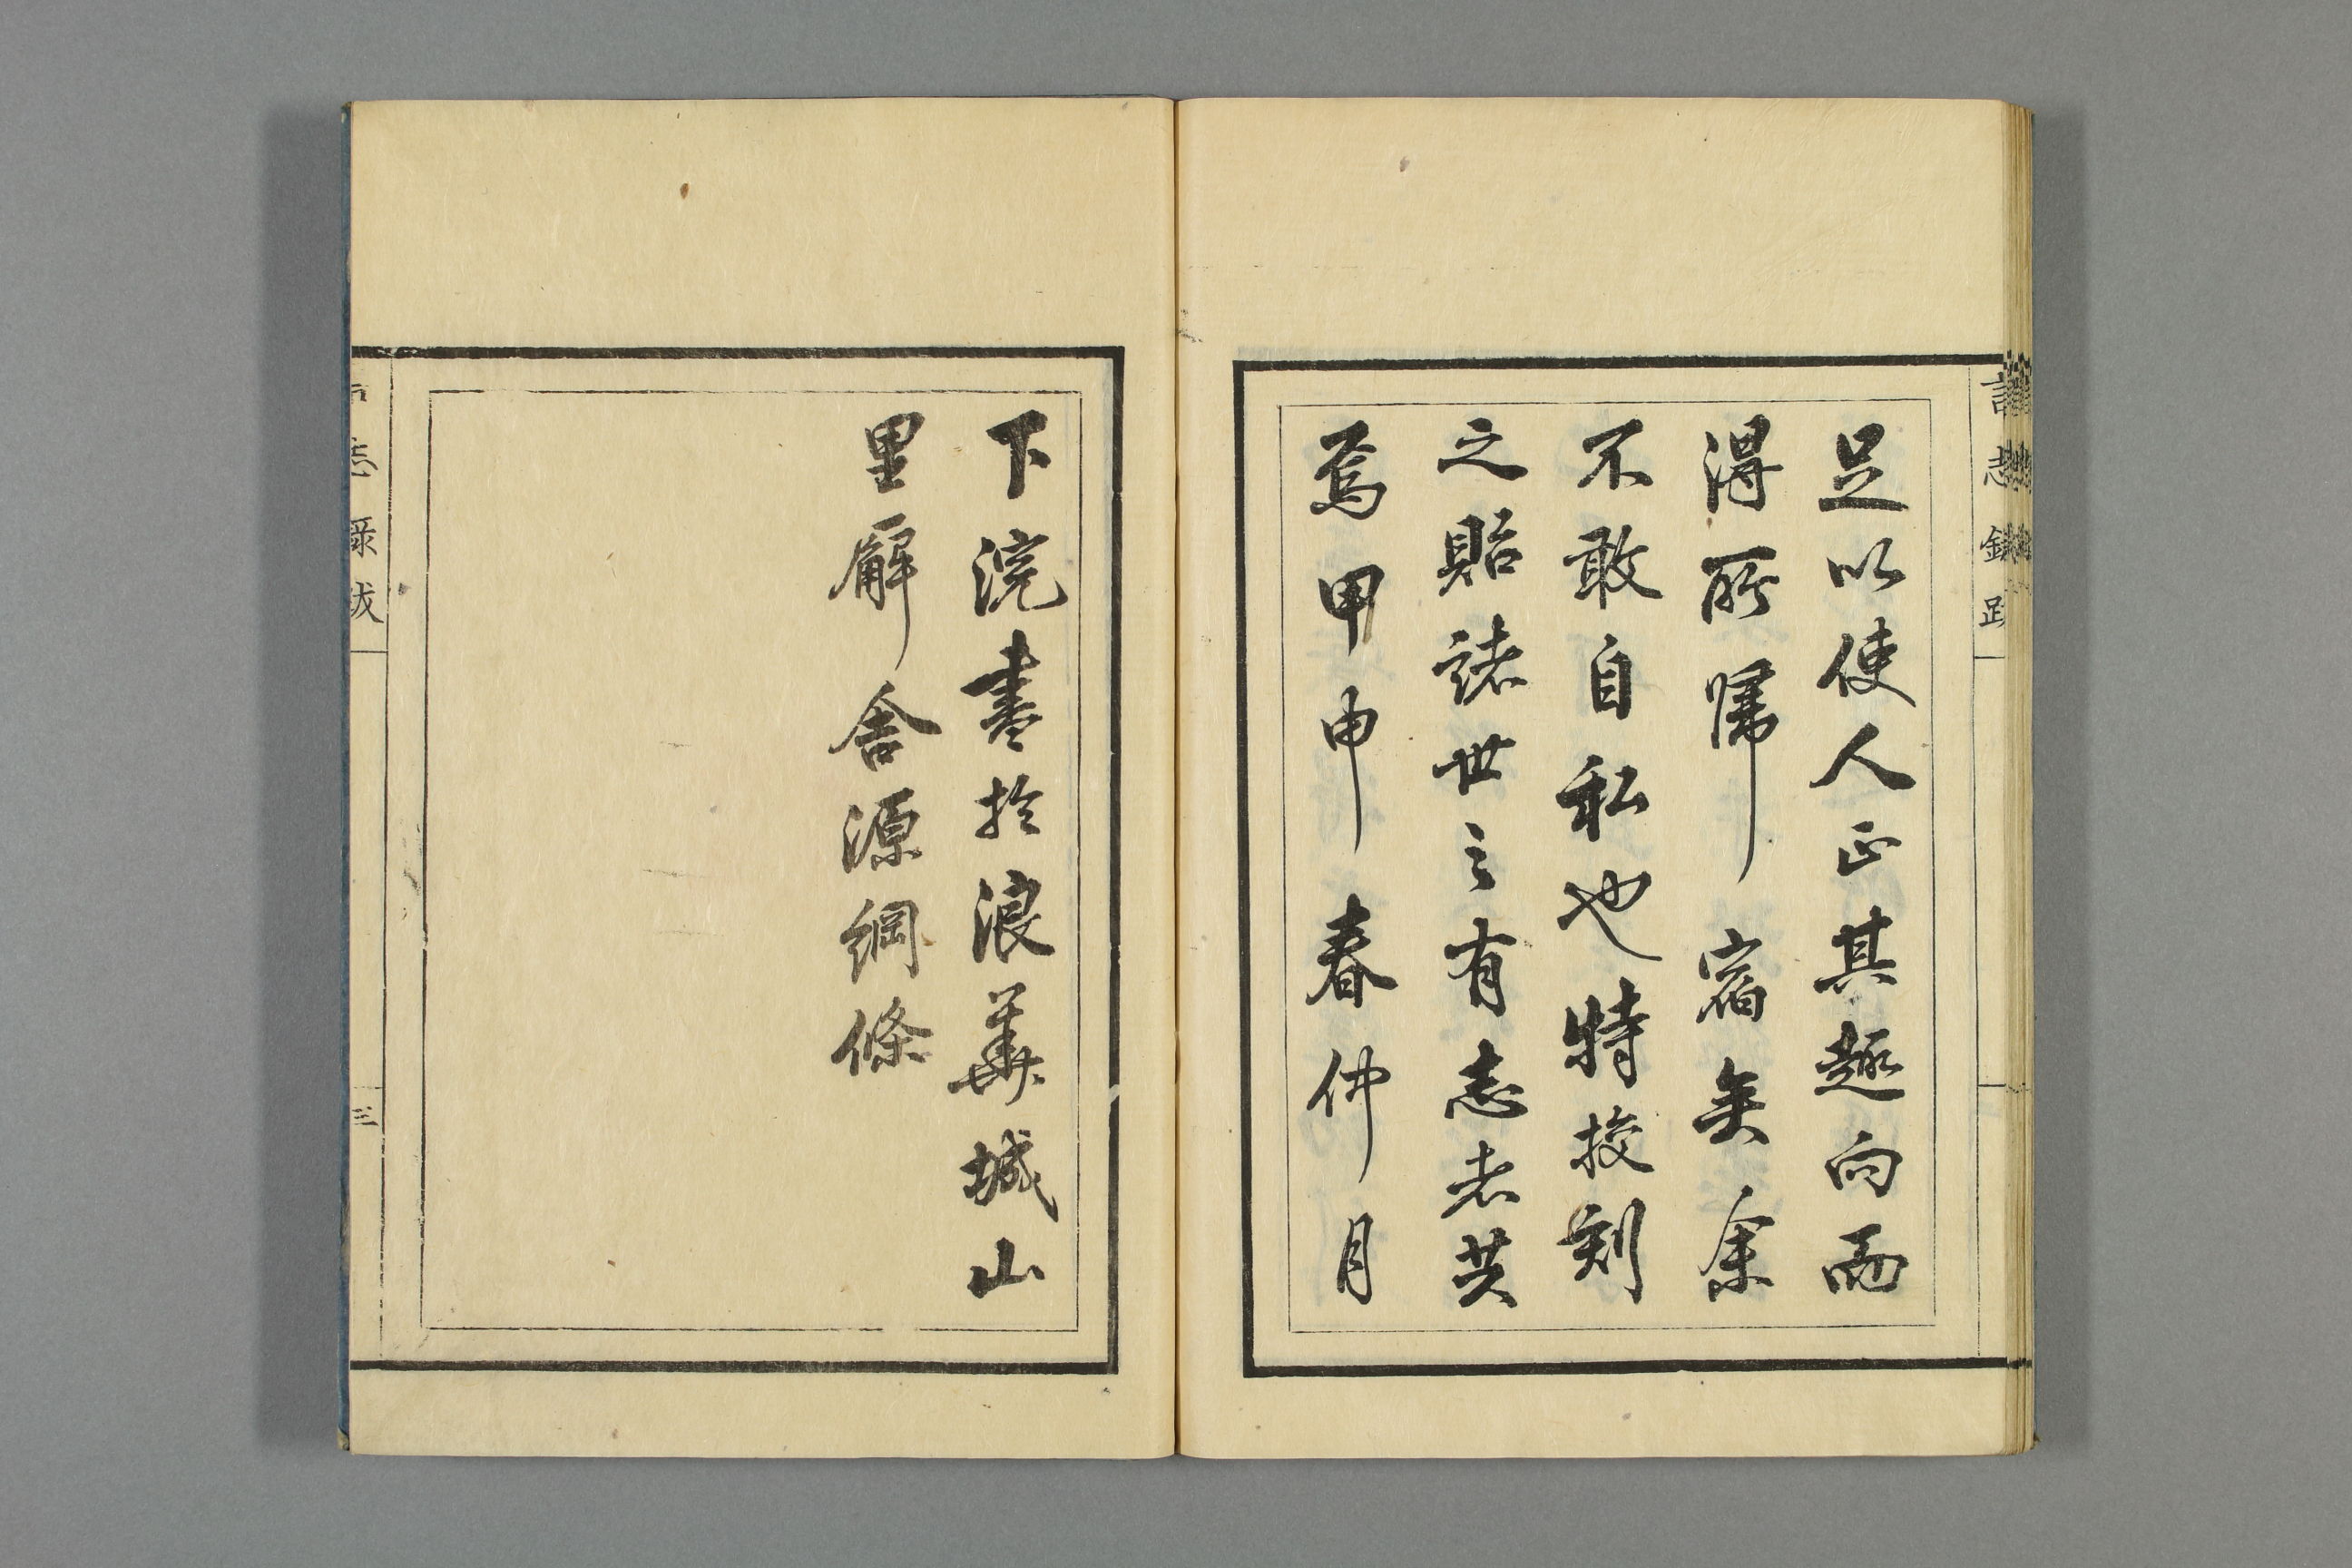 言志録跋
足以使人正其趣向而
得所帰宿矣余
不敢自私也特授刻
之貽諸世之有志者共
焉甲申春仲月
下浣書於浪華城山
里廨舎源綱條
志録跋
三